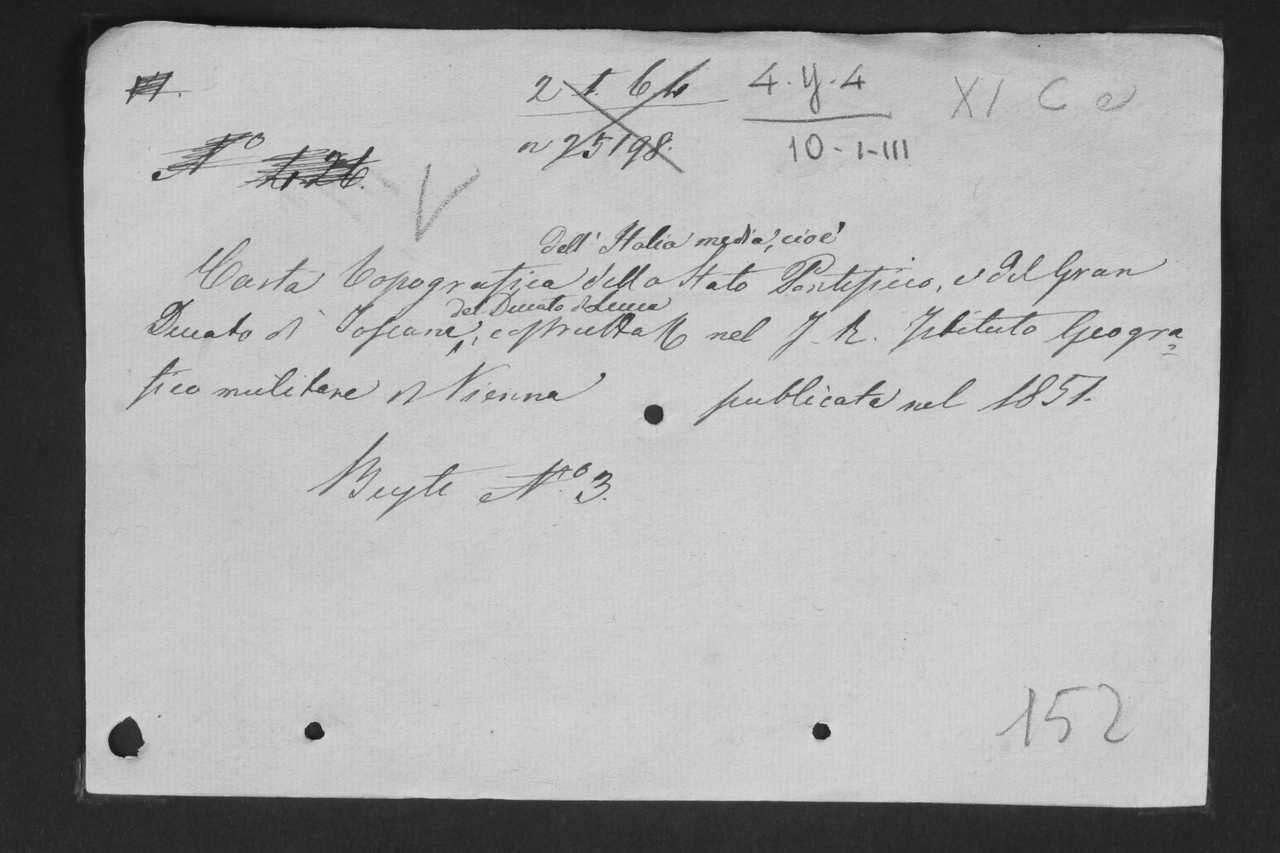 2 1. 6 4 4. y. 4 XI C e
n 25198. 10-I-III
No
V
Dell' Italia media, cioè
Carta topografica dello Stato Pontificio, e del Gran
del Ducato di Lucca
Ducato di Toscana, costrutta nel J. R. Istituto Geogra=
fico militare di Vienna publicata nel 1851.
No. 3.
152